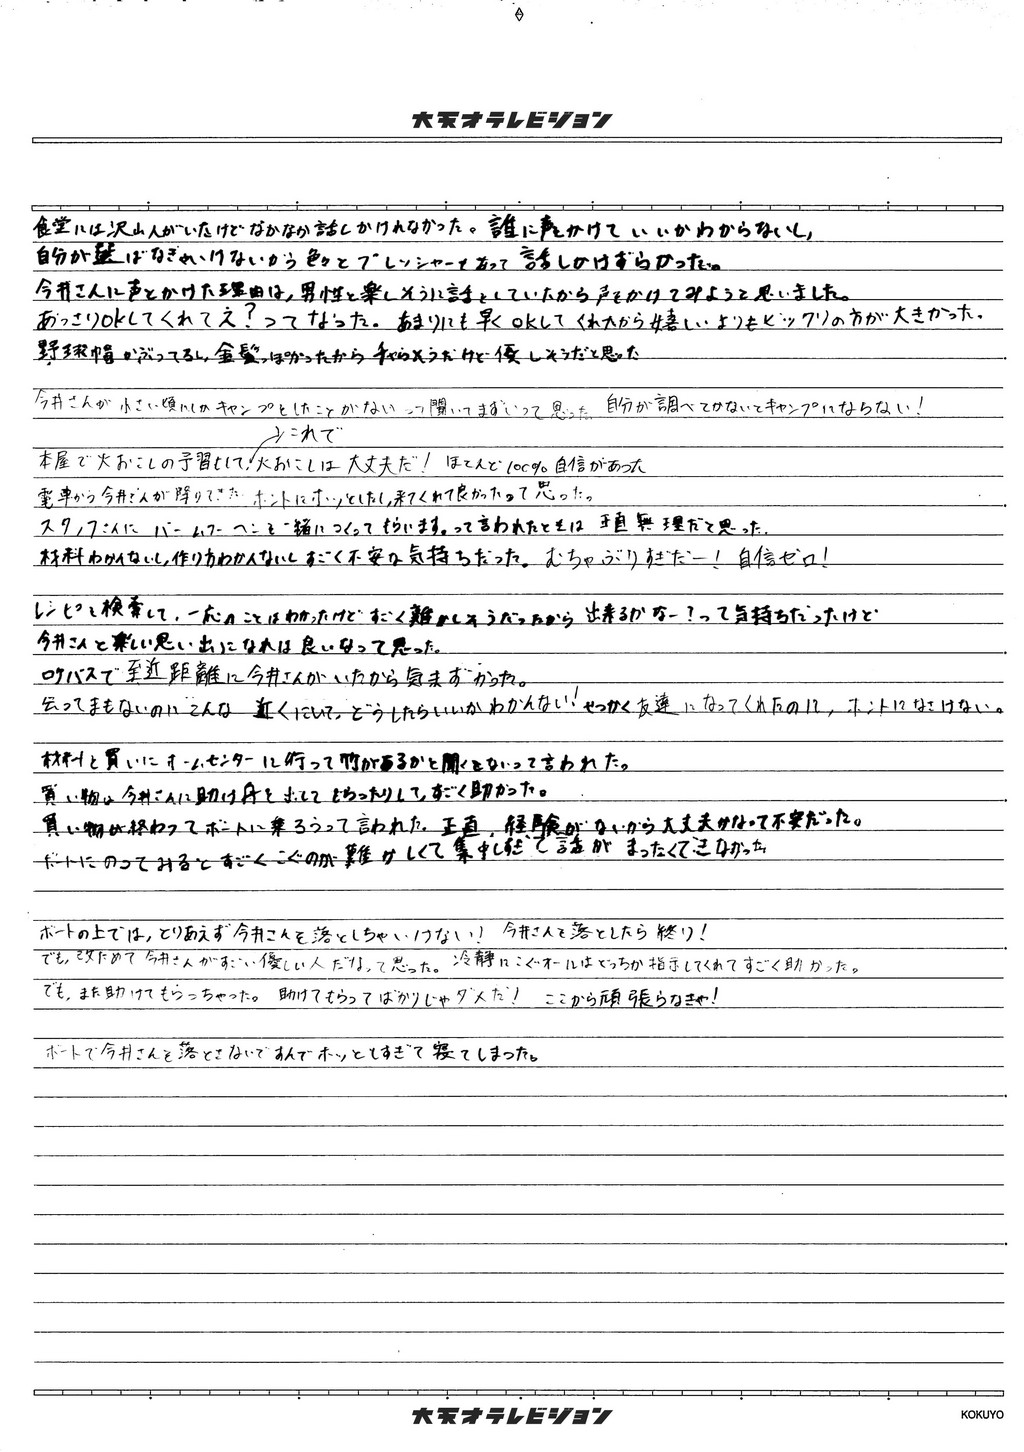 大天才テレビジョン
食堂には沢山人がいたけどなかなか話しかけれなかった。誰に声をかけていいかわからないし、
自分が選ばなきゃいけないから色々とプレッシャーもあって話しかけずらかった。
今井さんに声をかけた理由は、男性と楽しそうに話をしていたから声をかけてみようと思いました。
あっさりOKしてくれてえ?ってなった。あまりにも早くOKしてくれたから嬉しいよりもビックリの方が大きかった。
野球帽かぶってるし、金髪っぽかったからチャらそうだけど優しそうだと思った
今井さんが小さい頃にしかキャンプをしたことがないって聞いてまずいって思った 自分が調べてかないとキャンプにならない!
これで
本屋で火おこしの予習をして、火おこしは大丈夫だ! ほとんど100%自信があった
電車から今井さんが降りてきた ホントにホッとしたし、来てくれて良かったって思った。
スタッフさんにバームクーヘンを一緒につくってもらいます。って言われたときは正直無理だと思った。
材料わかんないし、作り方わかんないしすごく不安な気持ちだった。むちゃぶりすぎだー!自信ゼロ!
レシピを検索して、一応のことはわかったけどすごく難かしそうだったから出来るかなー?って気持ちだったけど
今井さんと楽しい思い出になればは良いなって思った。
ロケバスで至近距離に今井さんがいたから気まずかった。
会ってまもないのにこんな近くにいて、どうしたらいいかわかんない!せっかく友達になってくれたのに、ホントになさけない。
材料を買いにホームセンターに行って竹があるかと聞くとないって言われた。
買い物は今井さんに助け舟を出してもらったりして、すごく助かった。
買い物が終わってボートに乗ろうって言われた。正直、経験がないから大丈夫かなって不安だった。
ボートにのってみるとすごくこぐのが難かしくて集中しすぎて話がまったくできなかった
ボートの上では、とりあえず今井さんを落としちゃいけない!今井さんを落としたら終り!
でも、改ためて今井さんがすごい優しい人だなって思った。冷静にこぐオールはどっちか指示してくれてすごく助かった。
でも、また助けてもらっちゃった。助けてもらってばかりじゃダメだ! ここから頑張らなきゃ!
ボートで今井さんを落とさないですんでホッとしすぎて寝てしまった。
大天才テレビジョン
KOKUYO